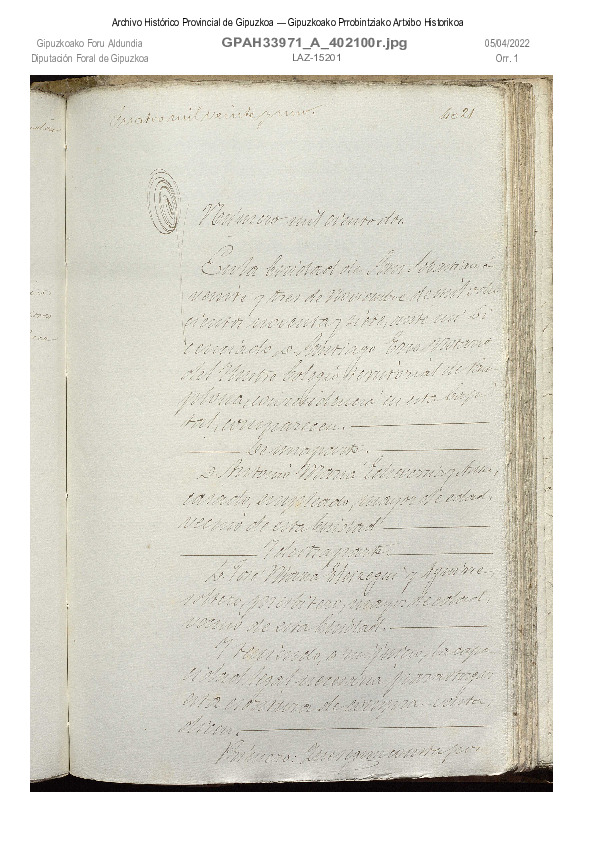 Archivo Histórico Provincial de Gipuzkoa — Gipuzkoako Prrobintziako Artxibo Historikoa
Gipuzkoako Foru Aldundia
Diputación Foral de Gipuzkoa
GPAH33971_A_402100r.jpg
LAZ-15201
05/04/2022
Orr. 1
Cuatro mil veinte y uno.
4021
Número mil ciento dos.
En la Ciudad de San Sebastian á
veinte y tres de Noviembre de mil ocho
cientos noventa y siete, ante mi Li
cenciado, D. Santiago Notario
del Ilustre Colegio Territorial de Pam
plona, con residencia en esta Capi
tal, comparecen.
De una parte.
D. Antonio Maria Echeverria y
casado, empleado, mayor de edad,
vecino de esta Ciudad
Y de otra parte
D. José Maria y Aguirre,
soltero, presbitero, mayor de edad,
vecino de esta Ciudad.
Y teniendo, á mi juicio, la capa
cidad legal necesaria para otorgar
esta escritura de compra-venta,
dicen.
Primero: Que por